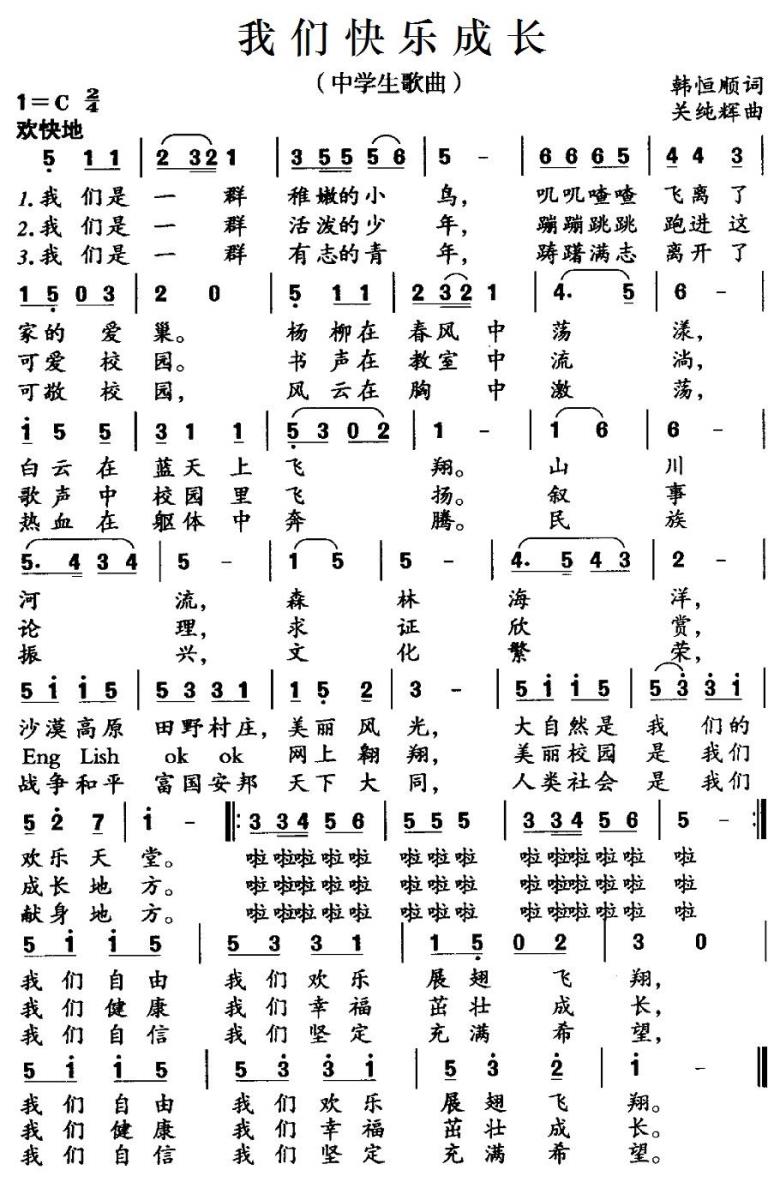 我们快乐成长
（中学生歌曲）
韩恒顺词
关纯辉曲
1=C 2/4
欢快地
5 1 1 | 2 3 2 1 | 3 5 5 5 6 | 5 - | 6 6 6 5 | 4 4 3 |
1.我们是一群稚嫩的小鸟，叽叽喳喳飞离了
2.我们是一群活泼的少年，蹦蹦跳跳跑进这
3.我们是一群有志的青年，踌躇满志离开了
1 5 0 3 | 2 0 | 5 1 1 | 2 3 2 1 | 4. 5 | 6 - |
家的爱巢。杨柳在春风中荡漾，
可爱校园。书声在教室中流淌，
可敬校园，风云在胸中激荡，
1 5 5 | 3 1 1 | 5 3 0 2 | 1 - | 1 6 | 6 - |
白云在蓝天上飞翔。山川
歌声中校园里飞扬。叙事
热血在躯体中奔腾。民族
5. 4 3 4 | 5 - | 1 5 | 5 - | 4. 5 4 3 | 2 - |
河流，森林海洋，
论理，求证欣赏，
振兴，文化繁荣，
5 1 1 5 | 5 3 3 1 | 1 5 2 | 3 - | 5 1 1 5 | 5 3 3 1 |
沙漠高原 田野村庄，美丽风光，大自然是我们的
Eng Lish ok ok 网上翱翔，美丽校园是我们
战争和平 富国安邦 天下大同，人类社会是我们
5 2 7 | 1 - |: 3 3 4 5 6 | 5 5 5 | 3 3 4 5 6 | 5 - :|
欢乐天堂。啦啦啦啦啦 啦啦啦 啦啦啦啦啦 啦
成长地方。啦啦啦啦啦 啦啦啦 啦啦啦啦啦 啦
献身地方。啦啦啦啦啦 啦啦啦 啦啦啦啦啦 啦
5 1 1 5 | 5 3 3 1 | 1 5 0 2 | 3 0 |
我们自由 我们欢乐 展翅飞翔，
我们健康 我们幸福 茁壮成长，
我们自信 我们坚定 充满希望，
5 1 1 5 | 5 3 3 1 | 5 3 2 | 1 - ‖
我们自由 我们欢乐 展翅飞翔。
我们健康 我们幸福 茁壮成长。
我们自信 我们坚定 充满希望。